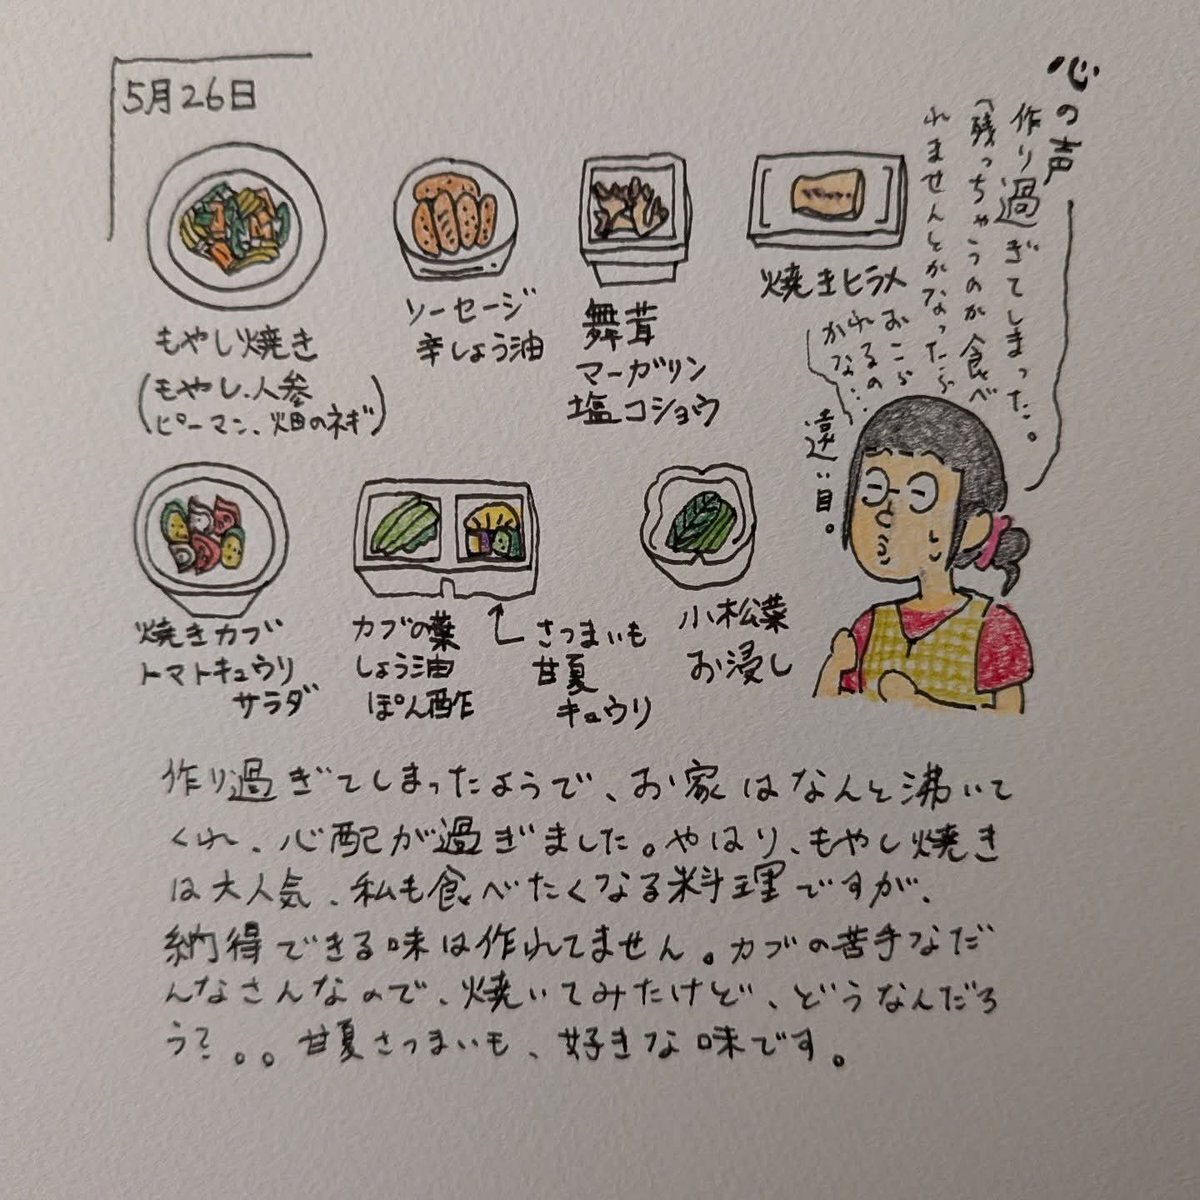 5月26日
もやし焼き
(もやし、人参
ピーマン、畑のネギ)
ソーセージ
辛しょう油
舞茸
マーガリン
塩コショウ
焼きヒラメ
心の声
作り過ぎてしまった。
「残っちゃうのが食べ
れませんとかなったら
おこら
れるの
かな…
遠い目。
焼きカブ
トマトキュウリ
サラダ
カブの葉
しょう油
ぽん酢
さつまいも
甘夏
キュウリ
小松菜
お浸し
作り過ぎてしまったようで、お家はなんと沸いて
くれ、心配が過ぎました。やはり、もやし焼き
は大人気、私も食べたくなる料理ですが、
納得できる味は作れてません。カブの苦手なだ
んなさんなので、焼いてみたけど、どうなんだろ
う?。。甘夏さつまいも、好きな味です。